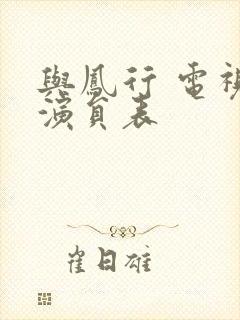 與鳳行 電視
演員表
崔日雄